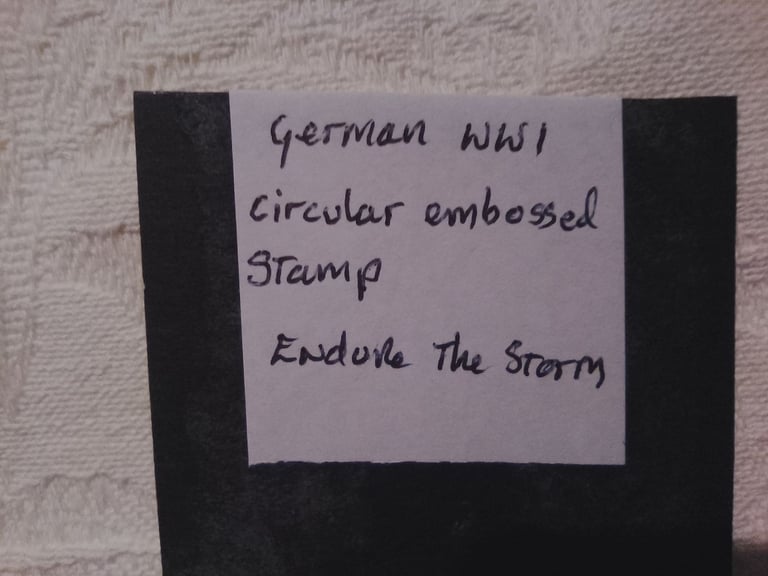 German WW1
circular embossed
Stamp
Endure The Storm